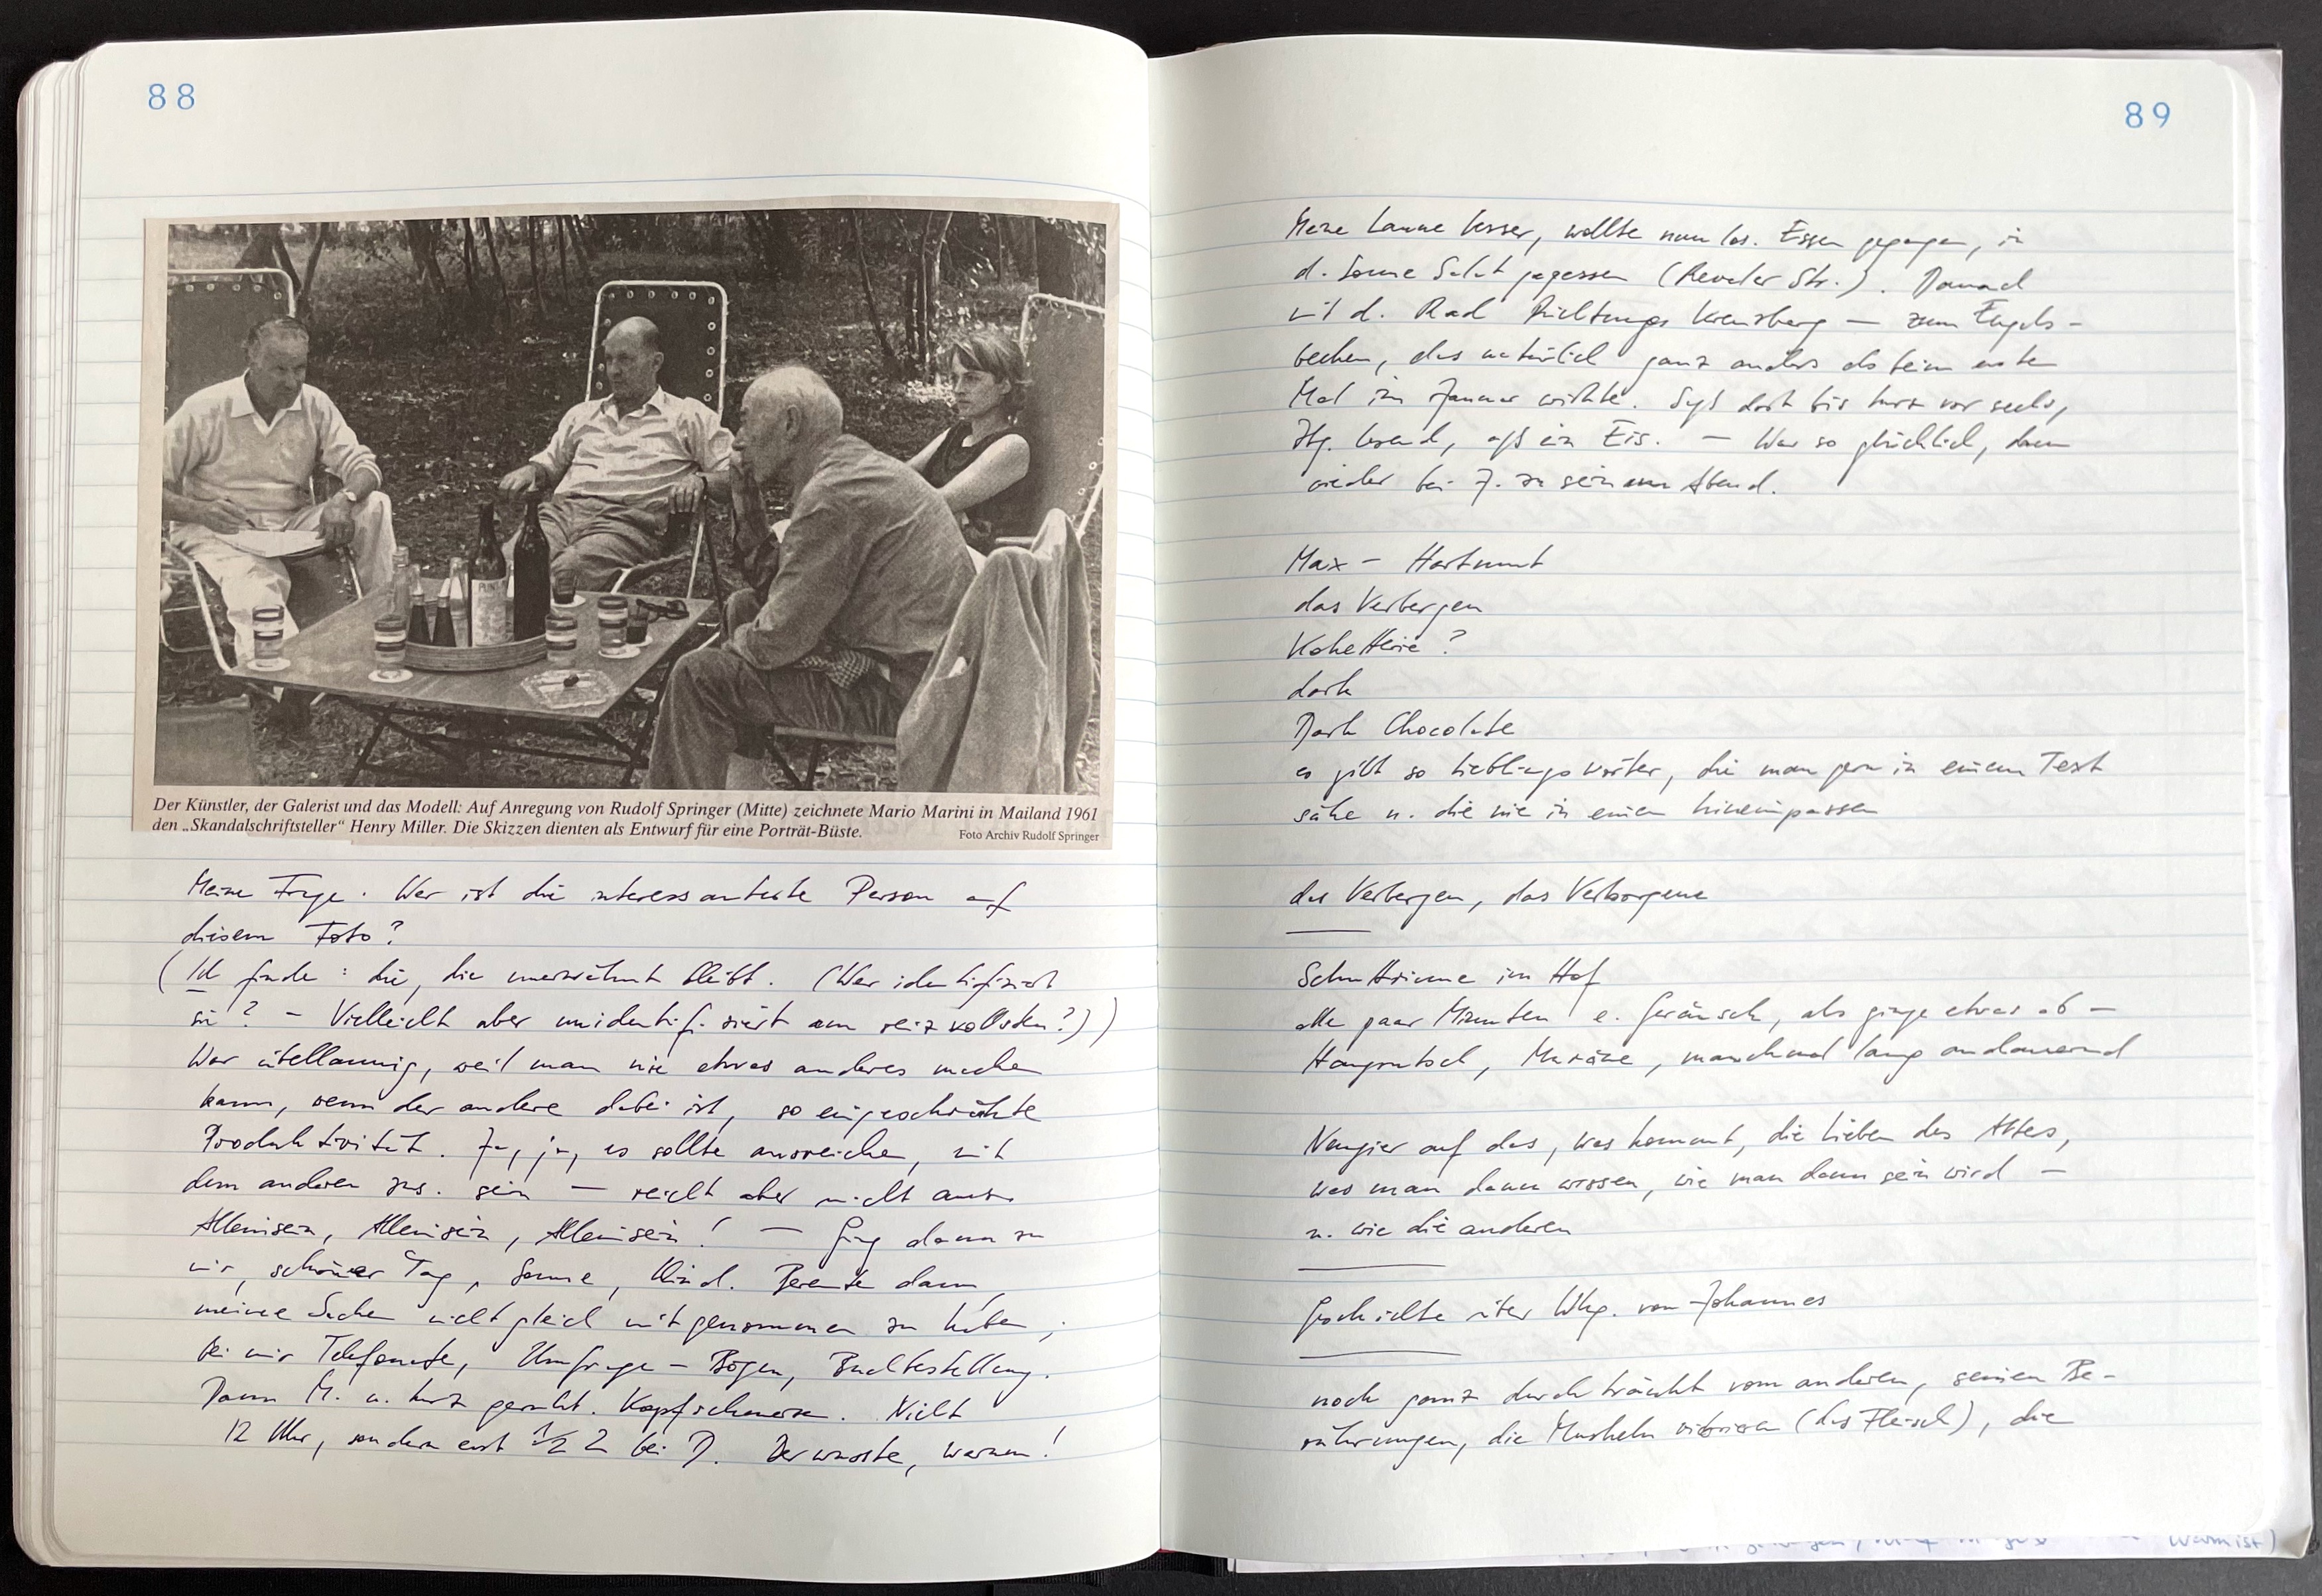 88
Der Künstler, der Galerist und das Modell: Auf Anregung von Rudolf Springer (Mitte) zeichnete Mario Marini in Mailand 1961
den „Skandalschriftsteller“ Henry Miller. Die Skizzen dienten als Entwurf für eine Porträt-Büste.
Foto Archiv Rudolf Springer
Meine Frage. Wer ist die interessanteste Person auf
diesem Foto?
(Ich finde: die, die unerwähnt bleibt. (Wer identifiziert
sie? – Vielleicht aber unidentifiziert am reizvollsten?))
War übellaunig, weil man nie etwas anderes machen
kann, wenn der andere dabei ist, so eingeschränkte
Produktivität. Ja, ja, es sollte ausreichen, mit
dem anderen zus. sein – reicht aber nicht aus.
Alleinsein, Alleinsein, Alleinsein! – Ging dann zu
mir, schöner Tag, Sonne, Wind. Bereute dann,
meine Sachen nicht gleich mitgenommen zu haben;
bei mir Telefonate, Umfrage-Bögen, Buchbestellung.
Dann M. u. kurz geruht. Kopfschmerzen. Nicht
12 Uhr, sondern erst ½ 2 bei J. Der wusste, warum!
89
Meine Laune besser, wollte nun los. Essen gegangen, in
d. Sonne Salat gegessen (Revaler Str.). Danach
mit d. Rad Richtung Kreuzberg – zum Engels-
becken, das natürlich ganz anders als beim ersten
Mal im Januar wirkte. Saß dort bis kurz vor sechs,
Ztg. lesend, aß ein Eis. – War so glücklich, dann
wieder bei J. zu sein am Abend.
Max – Hartmut
das Verbergen
Koketterie?
dark
Dark Chocolate
es gibt so Lieblingswörter, die man gern in einem Text
sähe u. die nie in einen hineinpassen
das Verbergen, das Verborgene
Schuttrinne im Hof
alle paar Minuten e. Geräusch, als ginge etwas ab –
Hangrutsch, Muräne, manchmal lang andauernd
Neugier auf das, was kommt, die Lieben des Alters,
was man dann wissen, wie man dann sein wird –
u. wie die anderen
Geschichte über Whg. von Johannes
noch ganz durchtränkt vom anderen, seinen Be-
rührungen, die Muskeln vibrieren (das Fleisch), die
warm ist)